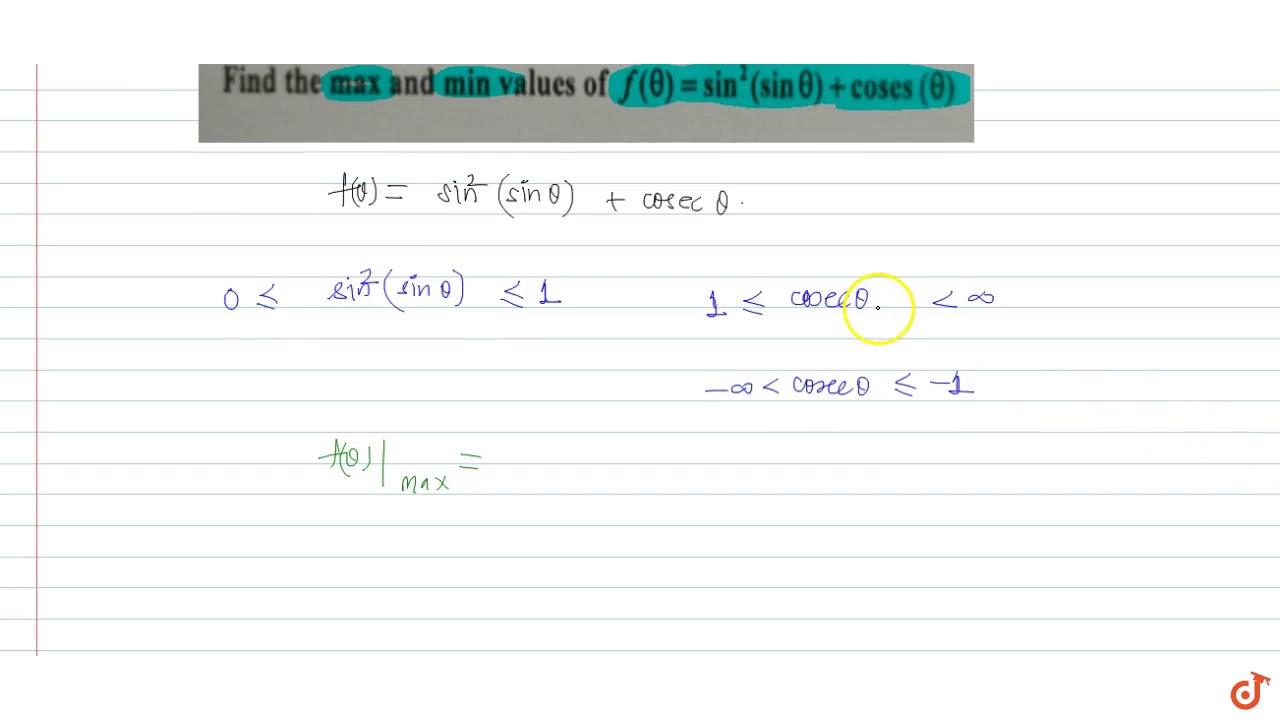 Find the max and min values of f(θ) = sin²(sin θ) + coses (θ)
f(θ) = sin²(sin θ) + cosec θ.
0 ≤ sin²(sin θ) ≤ 1
1 ≤ cosec θ. < ∞
-∞ < cosec θ ≤ -1
f(θ)|max =